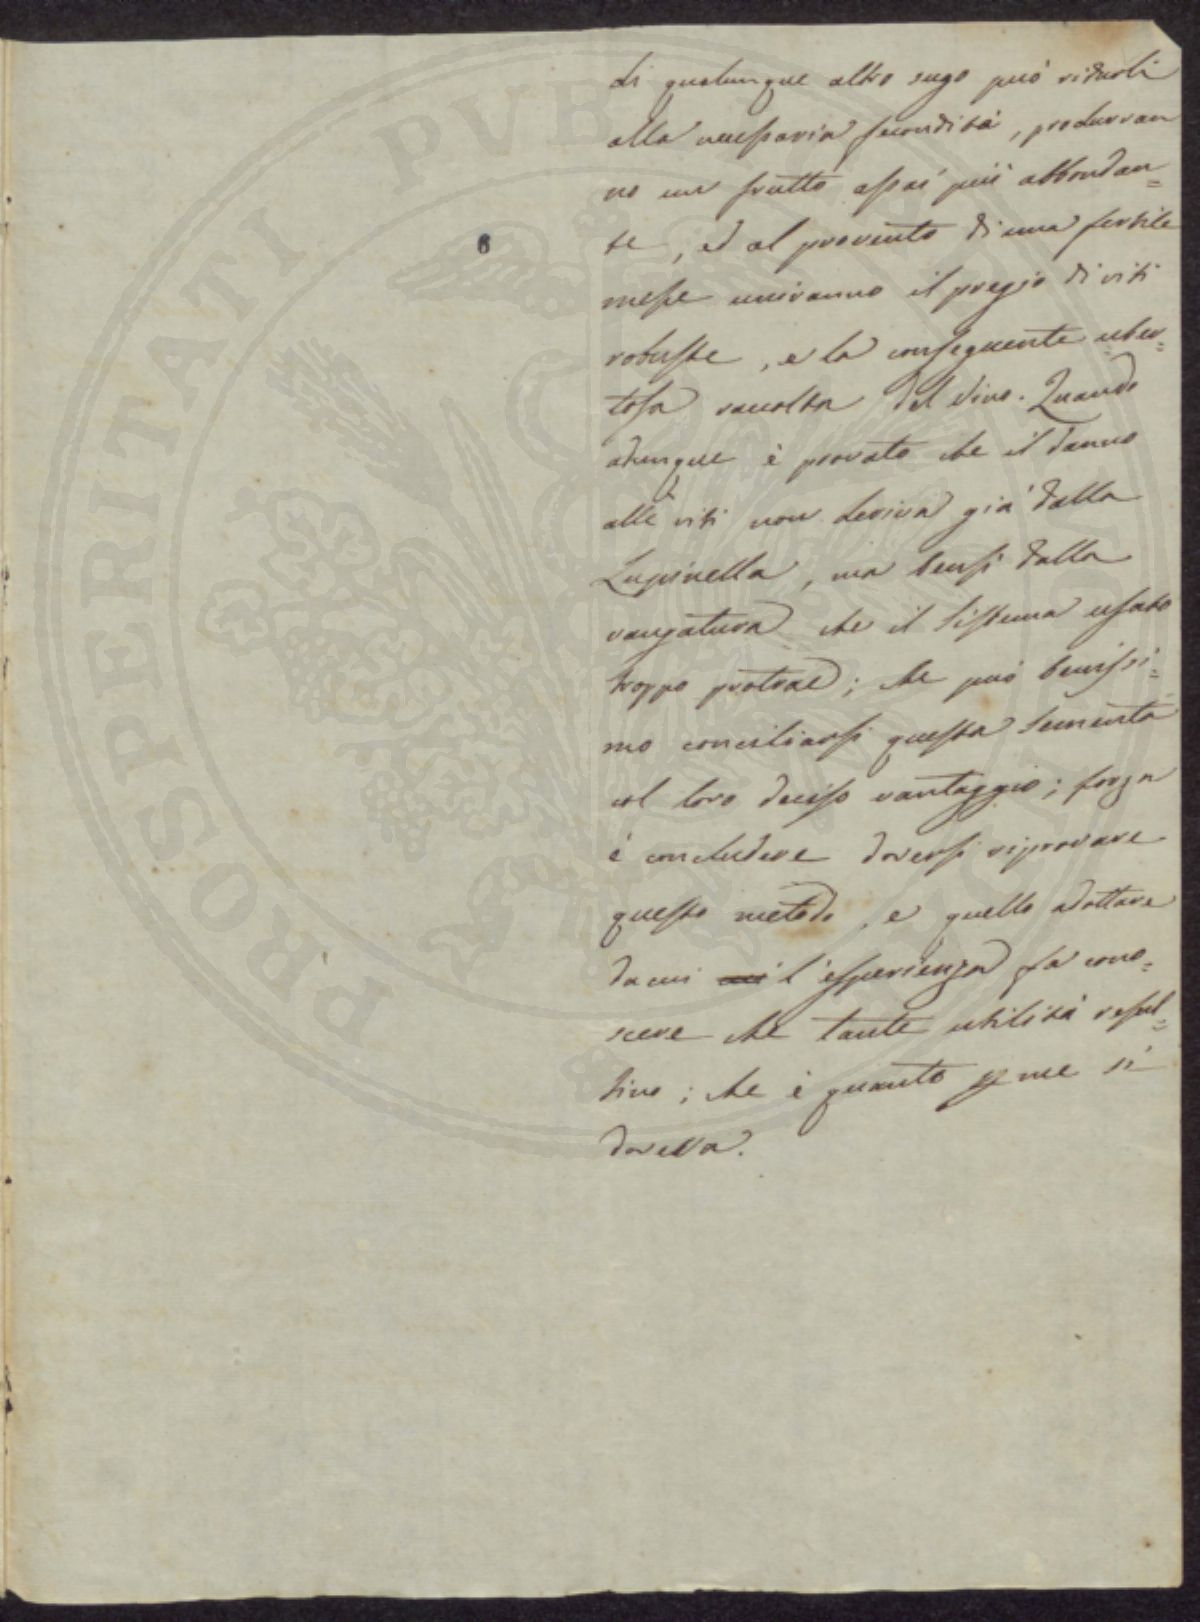 di qualunque altro sugo può ridurli
alla necessaria fecondità, produrran
no un frutto assai più abbondan=
te, ed al provento di una fertile
messe uniranno il pregio di viti
robuste, e la conseguente uber=
tosa raccolta del vino. Quando
adunque è provato che il danno
alle viti non deriva già dalla
Lupinella, ma bensì dalla
vangatura che il sistema usato
troppo protrae; che può benissi=
mo conciliarsi questa sementa
col loro deciso vantaggio; forza
è concludere doversi riprovare
questo metodo, e quello adottare
da cui l'esperienza fa cono=
scere che tante utilità resul=
tino; che è quanto p me si
doveva.
6
PROSPERITATI PVBLICAE